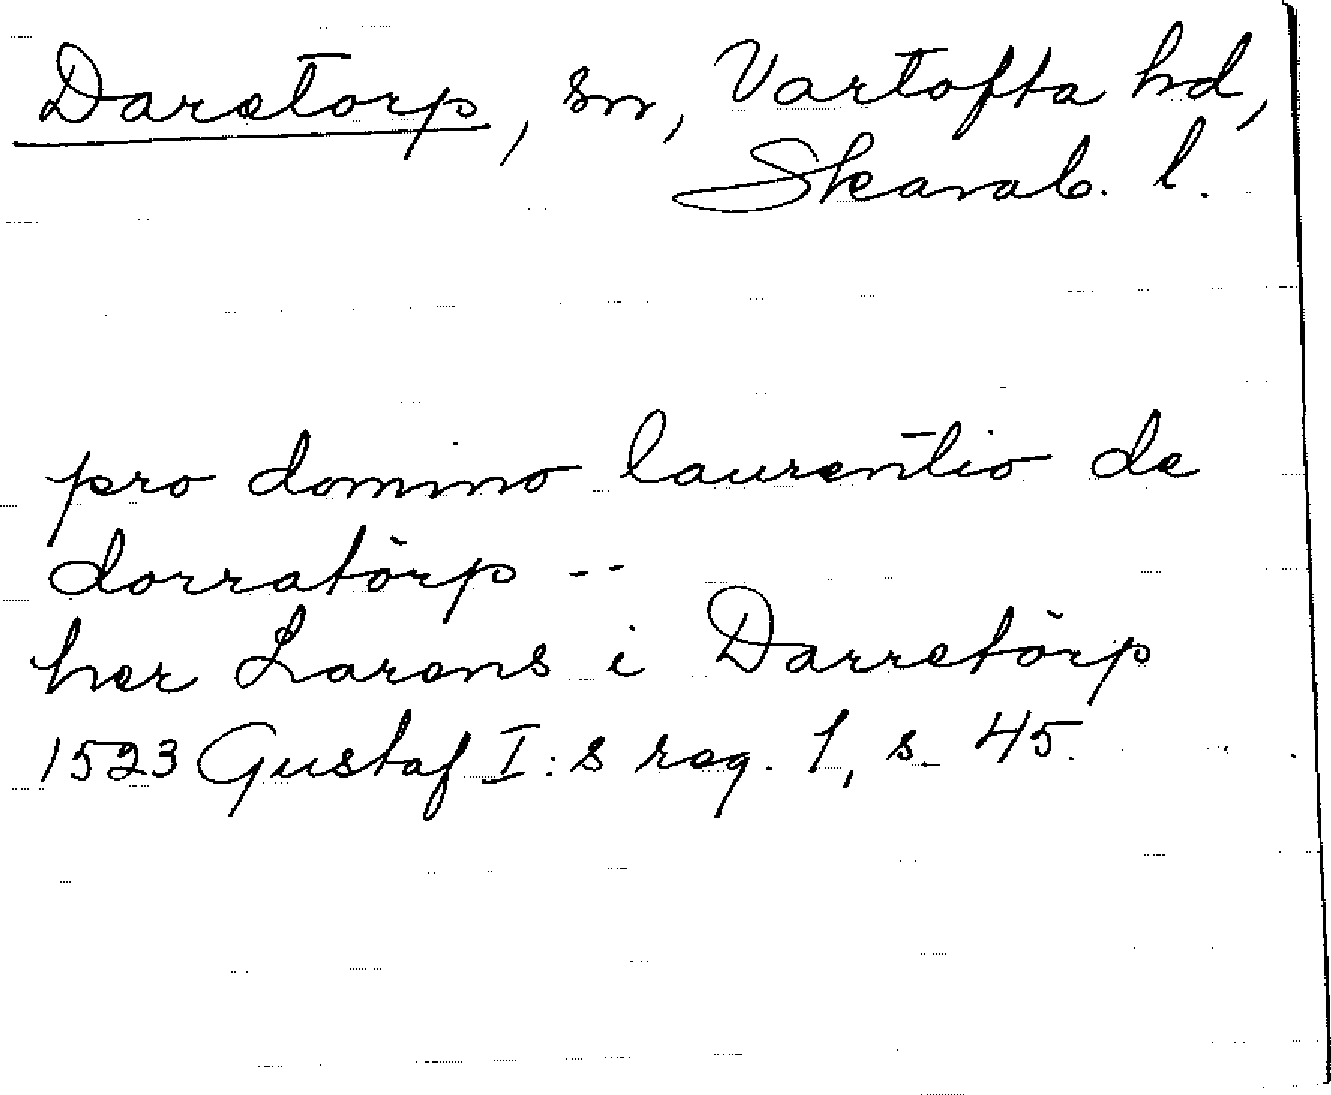 Daretorp, sn, Vartofta hd,
Skarab. l.
pro domino laurentio de
dorratörp --
her Larens i Darretörp
1523 Gustaf I:s reg. 1, s. 45.